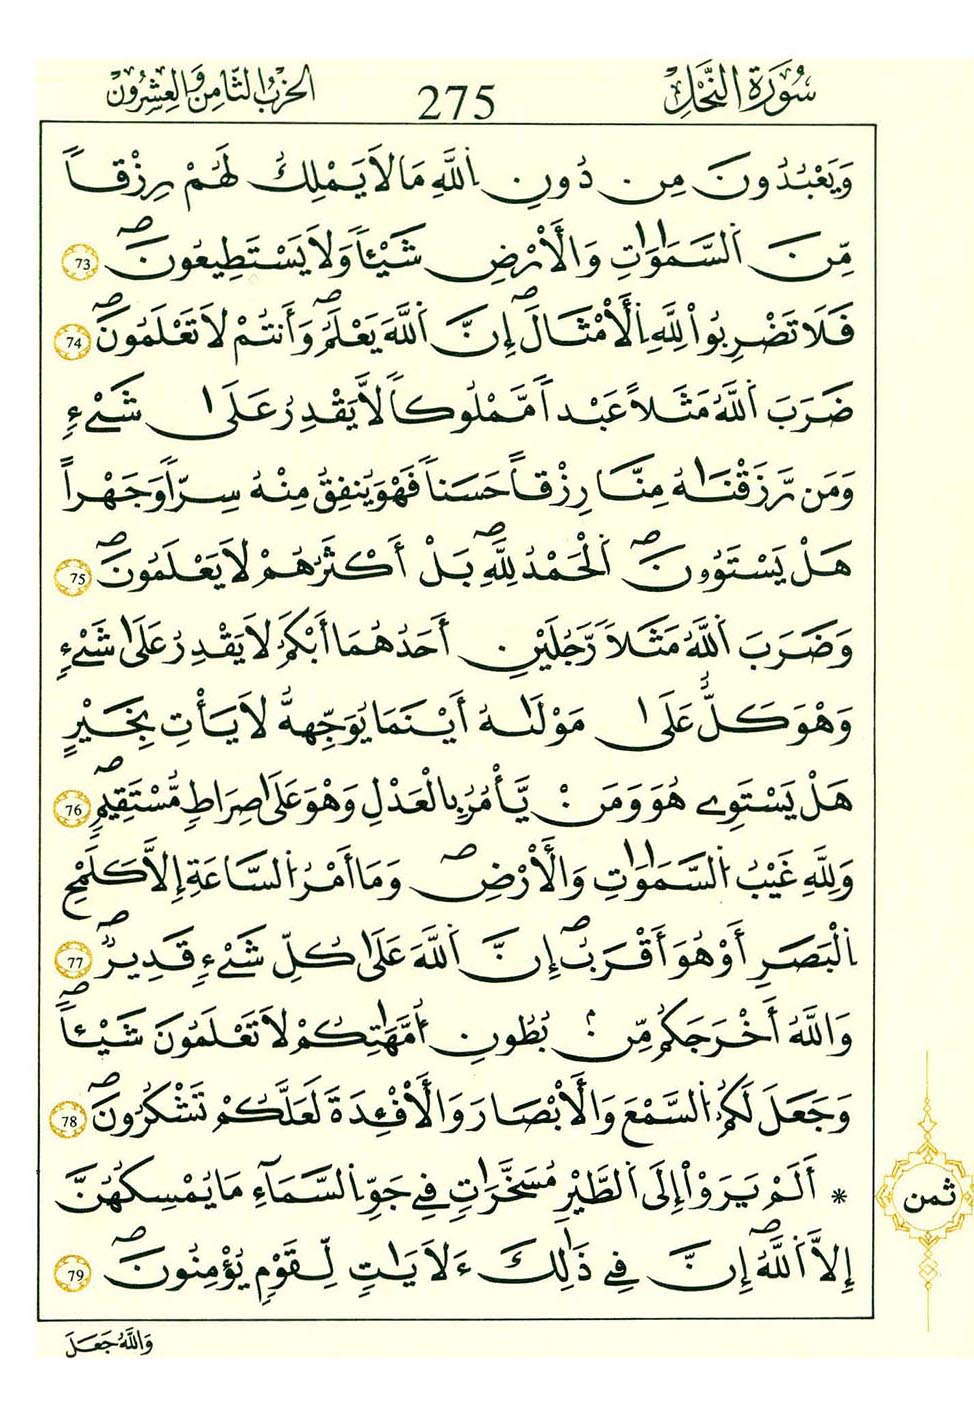 سُورَةُ النَّحْلِ 275 الحِزْبُ الثَّامِنُ وَالْعِشْرُونَ
وَيَعْبُدُونَ مِن دُونِ اِ۬للَّهِ مَا لَا يَمْلِكُ لَهُمْ رِزْقاً
مِّنَ اَ۬لسَّمَٰوَٰتِ وَالْأَرْضِ شَيْـٔاً وَلَا يَسْتَطِيعُونَۖ 73
فَلَا تَضْرِبُواْ لِلهِ اِ۬لْأَمْثَالَۖ إِنَّ اَ۬للَّهَ يَعْلَمُۖ وَأَنتُمْ لَا تَعْلَمُونَۖ 74
ضَرَبَ اَ۬للَّهُ مَثَلاً عَبْداً مَّمْلُوكاً لَّا يَقْدِرُ عَلَىٰ شَےْءٖ
وَمَن رَّزَقْنَٰهُ مِنَّا رِزْقاً حَسَناً فَهْوَ يُنفِقُ مِنْهُ سِرّاً وَجَهْراً
هَلْ يَسْتَوُۥنَۖ اَ۬لْحَمْدُ لِلهِۖ بَلْ أَكْثَرُهُمْ لَا يَعْلَمُونَۖ 75
وَضَرَبَ اَ۬للَّهُ مَثَلاً رَّجُلَيْنِ أَحَدُهُمَا أَبْكَمُ لَا يَقْدِرُ عَلَىٰ شَےْءٖ
وَهْوَ كَلٌّ عَلَىٰ مَوْلَىٰهُ أَيْنَمَا يُوَجِّههُّ لَا يَأْتِ بِخَيْرٍ
هَلْ يَسْتَوِے هُوَ وَمَنْ يَّأْمُرُ بِالْعَدْلِ وَهْوَ عَلَىٰ صِرَاطٍ مُّسْتَقِيمٍۖ 76
وَلِلهِ غَيْبُ اُ۬لسَّمَٰوَٰتِ وَالْأَرْضِۖ وَمَا أَمْرُ اُ۬لسَّاعَةِ إِلَّا كَلَمْحِ
اِ۬لْبَصَرِ أَوْ هُوَ أَقْرَبُۖ إِنَّ اَ۬للَّهَ عَلَىٰ كُلِّ شَےْءٖ قَدِيرٌۖ 77
وَاللَّهُ أَخْرَجَكُم مِّنۢ بُطُونِ أُمَّهَٰتِكُمْ لَا تَعْلَمُونَ شَيْـٔاًۖ
وَجَعَلَ لَكُمُ اُ۬لسَّمْعَ وَالْأَبْصَٰرَ وَالْأَفْـِٕدَةَ لَعَلَّكُمْ تَشْكُرُونَۖ 78
* أَلَمْ يَرَوْاْ إِلَى اَ۬لطَّيْرِ مُسَخَّرَٰتٖ فِے جَوِّ اِ۬لسَّمَآءِ مَا يُمْسِكُهُنَّ
إِلَّا اَ۬للَّهُۖ إِنَّ فِے ذَٰلِكَ ءَلَايَٰتٖ لِّقَوْمٍ يُؤْمِنُونَۖ 79
ثمن
وَاللَّهُ جَعَلَ